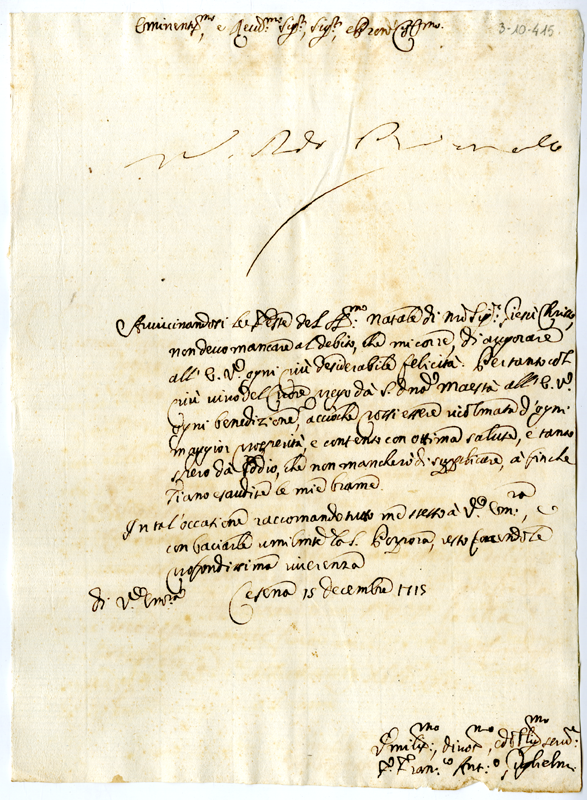 Eminent.mo, e Reud.mo Sig.r, Sig.r, e Pron
3-10-415.
Avvicinandosi le feste del S.mo Natale di nro Sig.r Giesù Christo,
non devo mancare al debito, che mi corre, di augurare
all' E. V. ogni più desiderabile felicità. Per tanto col
più vivo del Cuore prego da S. D. Maestà all' E. V.
ogni benedizione, acciòche possi essere ricolmata d'ogni
maggior prosperità, e contento con ottima salute, e tanto
spero da Iddio, che non mancherò di supplicare, à finche
siano esaudite le mie brame.
In tal' occatione raccomando tutto me stesso à V. Em.ra, e
con baciarle umilmte la S. Porpora, resto facendole
profondissima riverenza
di V. Em.ra Cesena 15 decembre 1715
Umilis.mo, divot.mo, ed servo
Fran.co Ant.o